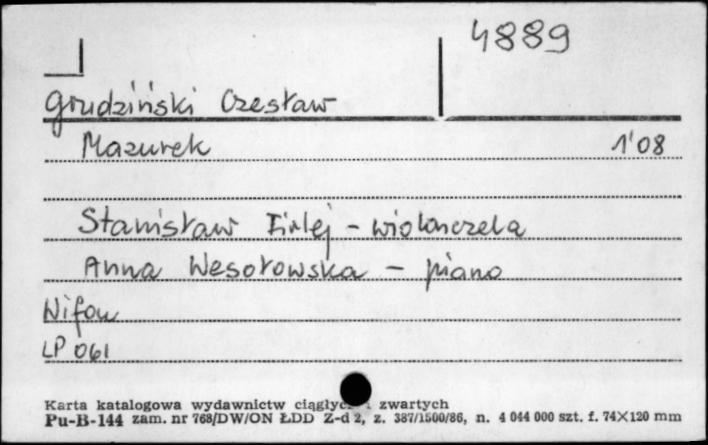 4889
Grudziński Czesław
Mazurek 1'08
Stanisław Firlej - wiolonczela
Anna Wesołowska - piano
Wifon
LP 061
Karta katalogowa wydawnictw ciągłyc i zwartych
Pu-B-144 zam. nr 768/DW/ON ŁDD Z-d 2, z. 387/1500/86, n. 4 044 000 szt. f. 74X120 mm